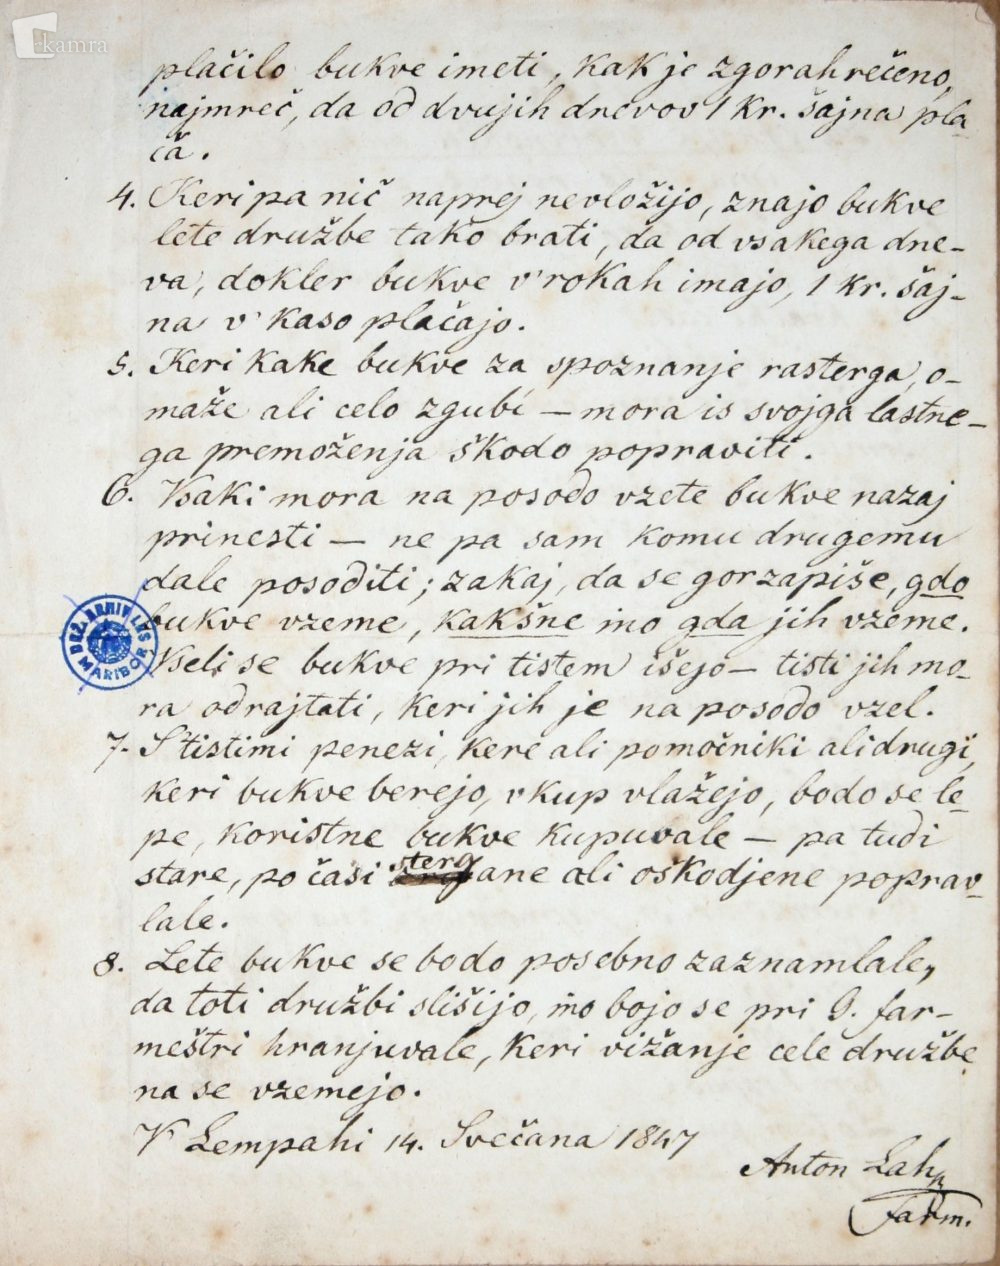 kamra
plačilo bukve imeti, kak je zgorah rečeno,
najmreč, da od dvujih drevov 1 kr. šajna pla
ča.
4. Keri pa nič naprej nevložijo, znajo bukve
lete družbe tako brati, da od vsakega dne-
va, dokler bukve v' rokah imajo, 1 kr. šaj-
na v' kaso plačajo.
5. Keri kake bukve za spoznanje rasterga, o-
maže ali celo zgubi — mora is svojga lastne-
ga premoženja škodo popraviti.
6. Vsaki mora na posodo vzete bukve nazaj
prinesti — ne pa sam komu drugemu
dale posoditi; zakaj, da se gor zapiše, gdo
bukve vzeme, kakšne ino gda jih vzeme.
Vseli se bukve pri tistem išejo — tisti jih mo-
ra odrajtati, keri jih je na posodo vzel.
7. S' tistimi penezi, kere ali pomočniki ali drugi,
keri bukve berejo, v kup vlažejo, bodo se le-
pe, koristne bukve kupuvale — pa tudi
stare, po časi stergane ali oškodjene poprav-
lale.
8. Lete bukve se bodo posebno zaznamlale,
da toti družbi slišijo, ino bojo se pri G. far-
meštri hranjuvale, keri vižanje cele družbe
na se vzemejo.
V Lempahi 14. Svečana 1847
Anton Lah
farm.
DEŽ. ARHIV LRS
MARIBOR